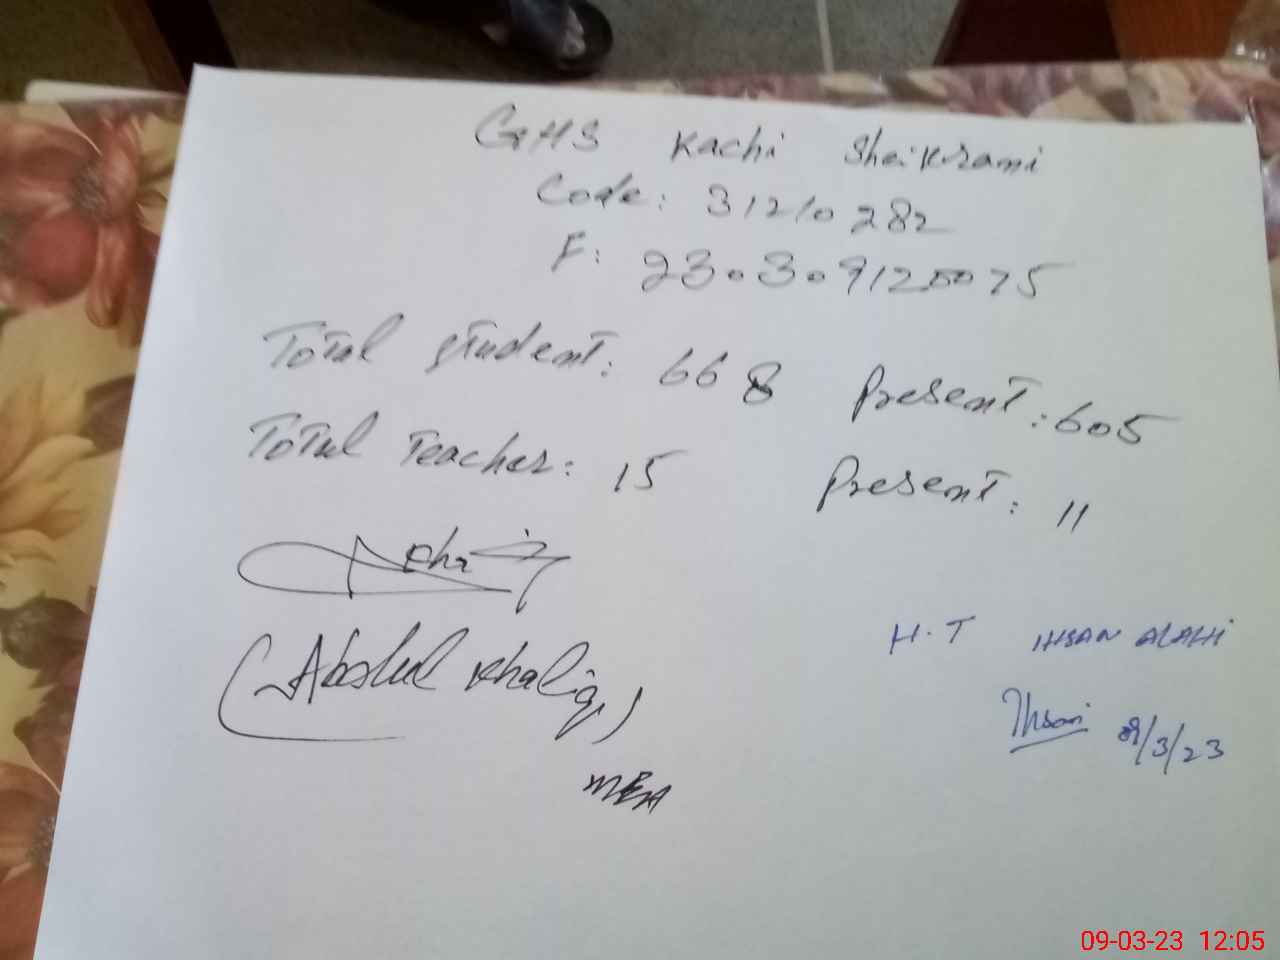 GHS Kachi Sheikrami
Code: 31210282
F: 230309125075
Total student: 668 Present: 605
Total Teacher: 15 Present: 11
(Abdul Khaliq)
MEA
H.T IHSAN ALAHI
Ihsan 9/3/23
09-03-23 12:05